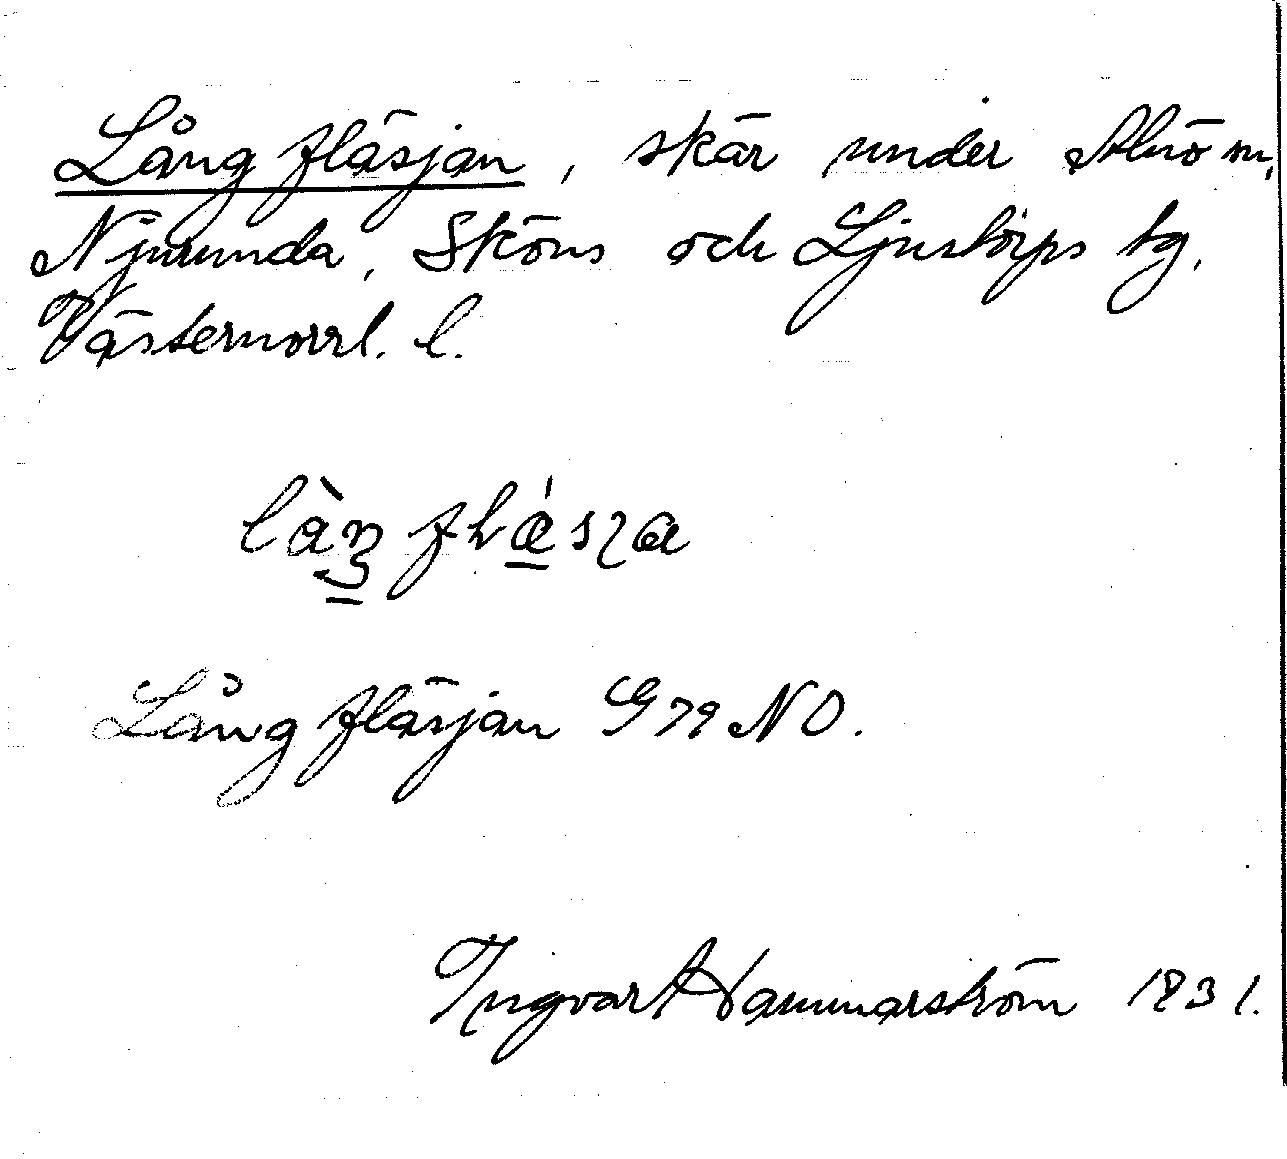 Långfläsjan, skär under Alnö m,
Njurunda, Sköns och Ljustorps tg.
Västernorrl. l.
Långfläsjan G79NO.
Ingvar Hammarström 1931.